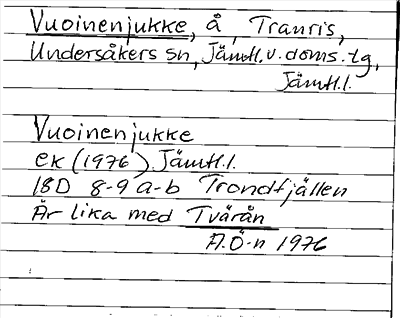 Vuoinenjukke, å, Tranris,
Undersåkers sn, Jämtl. v. doms. tg,
Jämtl.l.
Vuoinenjukke
ek (1976) Jämtl.l.
18D 8-9 a-b Trondfjällen
Är lika med Tvärån
A.Ö-n 1976